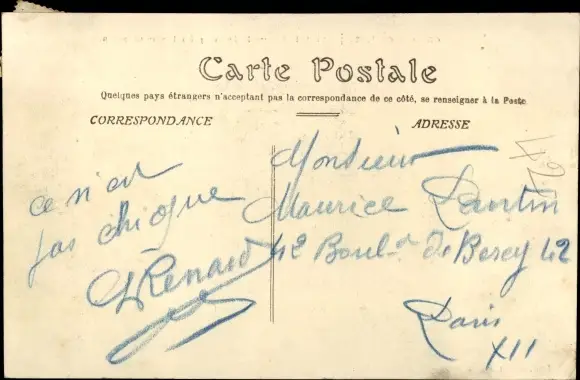 Carte Postale
Quelques pays étrangers n'acceptant pas la correspondance de ce côté, se renseigner à la Poste
CORRESPONDANCE
ADRESSE
ce n'est
pas chique
Renard
Monsieur
Maurice Lantin
42 Boul-d de Bercy 42
Paris
XII
42